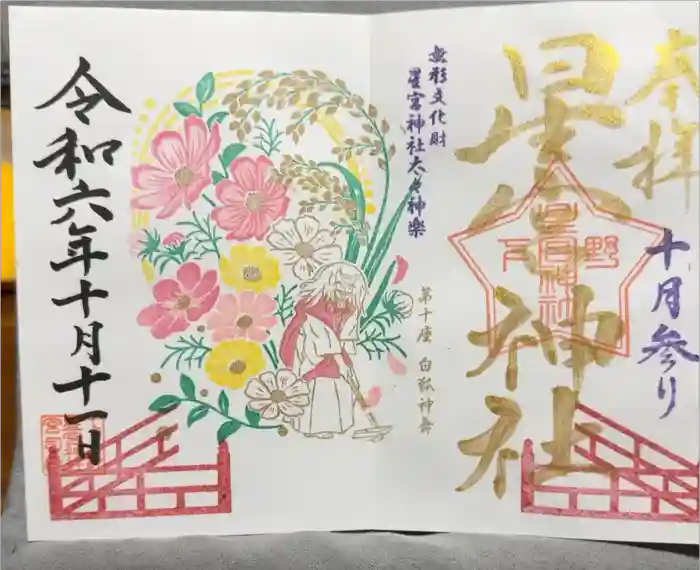 奉拝
十月参り
星宮神社
星宮神社
下野
無形文化財
星宮神社太々神楽
第十座 白狐神舞
令和六年十月十一日